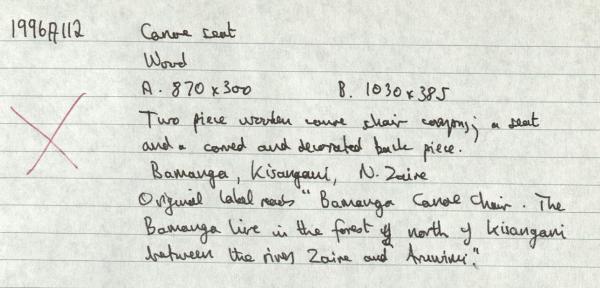 1996A112 Canoe seat
Wood
A. 870 x 300 B. 1030 x 385
Two piece wooden canoe chair comprising; a seat
and a carved and decorated back piece.
Bamanga, Kisangani, N. Zaire
Original label reads "Bamanga Canoe Chair. The
Bamanga live in the forest of north of Kisangani
between the rivers Zaire and Aruwimi."